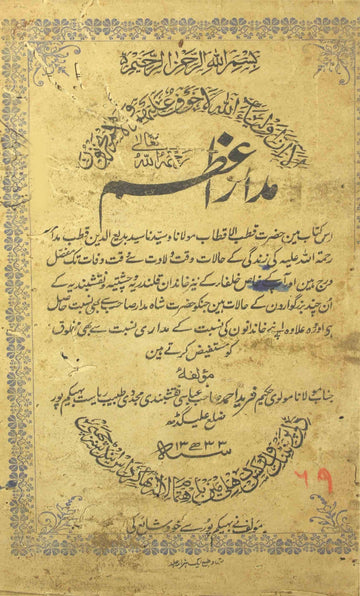 بسم اللہ الرحمن الرحیم
الا ان اولیاء اللہ لا خوف علیہم ولا ہم یحزنون
مدار اعظم
رحمۃ اللہ تعالی
اس کتاب مین حضرت قطب الاقطاب مولانا و سیدنا سید بدیع الدین قطب مدار
رحمۃ اللہ علیہ کی زندگی کے حالات وقت ولادت سے وقت وفات تک مفصل
درج ہین اور آپ کے خلفار کے نیز خاندان قلندریہ و چشتیہ و نقشبندیہ کے
اُن چند بزرگوارون کے حالات ہین جنکو حضرت شاہ مدار صاحب سے بھی نسبت حاصل
ہے اور علاوہ اپنے خاندانون کی نسبت کے مداری نسبت سے بھی مخلوق
کو مستفیض کرتے ہین
مؤلفہ
جناب مولانا مولوی حکیم فرید احمد صاحب عباسی نقشبندی مجددی طبیب ریاست بھیکم پور
ضلع علیگڈھ
سنہ ۱۳۳۳ ھ
۶۹
مؤلف نے بھیکم پور سے خود شائع کی